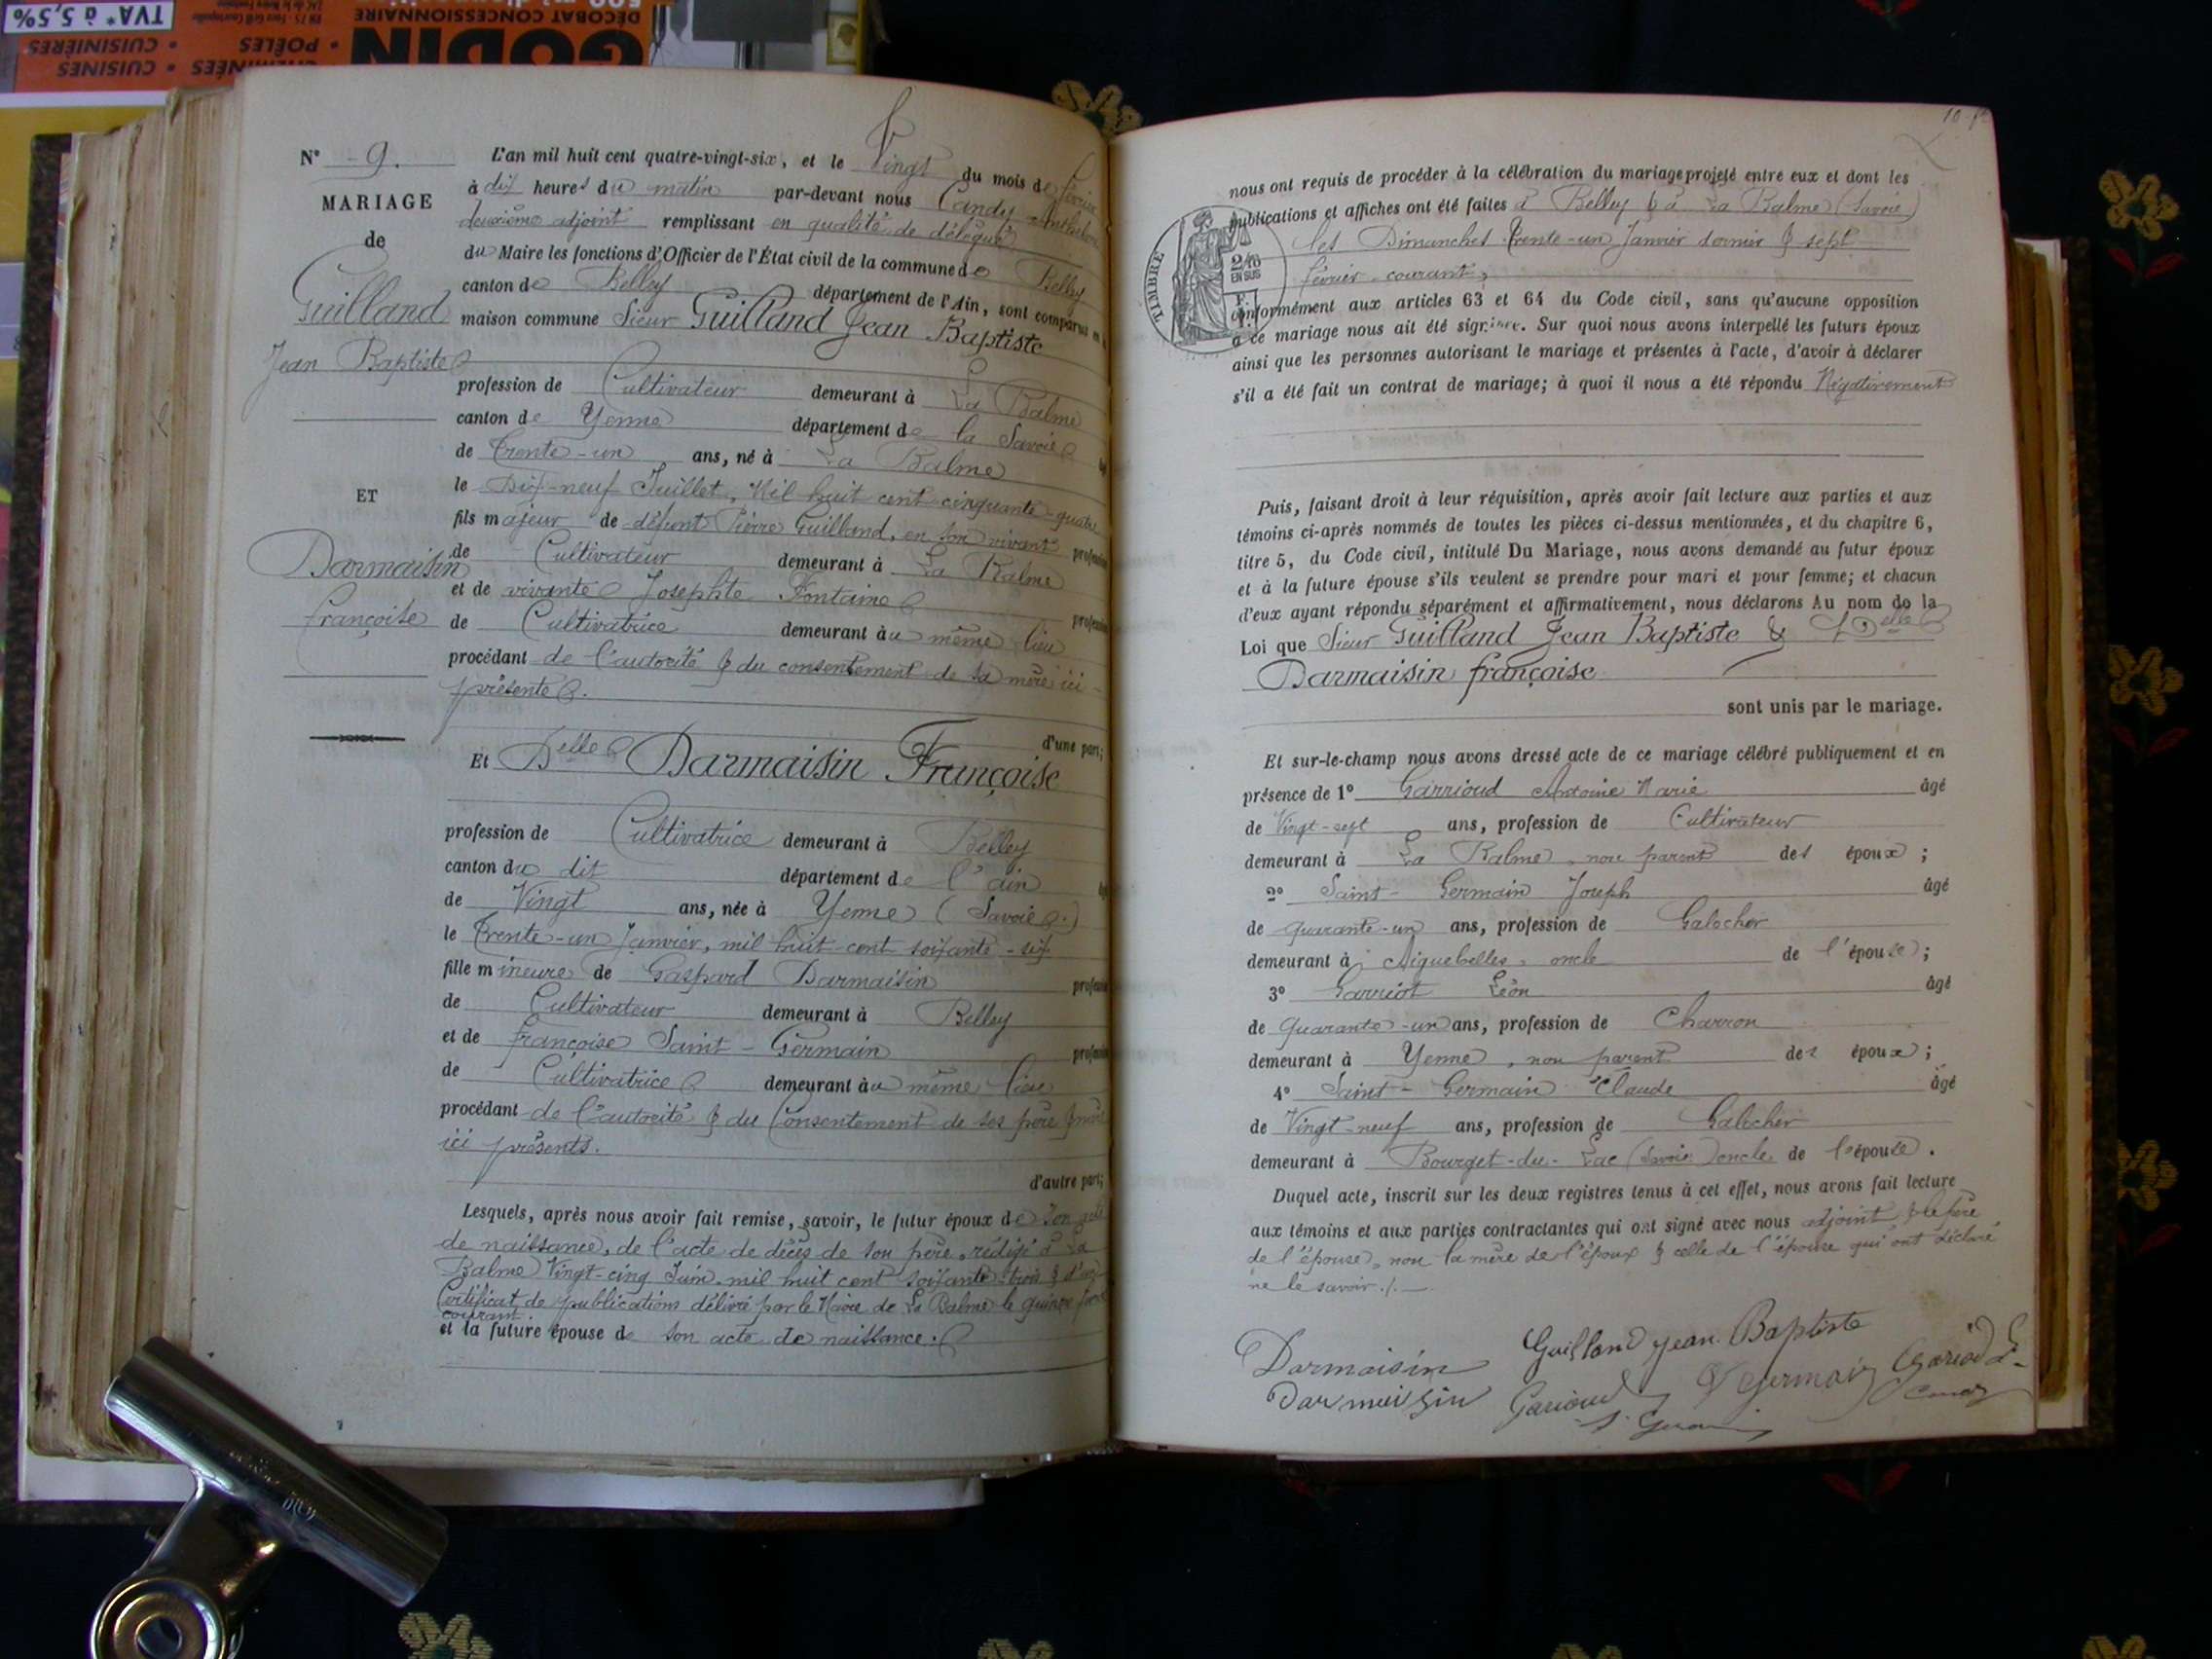 TVA* à 5,5%
DÉCOBAT CONCESSIONNAIRE
GODIN
• POÊLES
• CUISINIÈRES
CHEMINÉES • CUISINES
N° 9.
MARIAGE
de
Guilland
Jean Baptiste
ET
Darmaisin
françoise
L'an mil huit cent quatre-vingt-six, et le Vingt du mois de février
à dix heures du matin par-devant nous Candy Anthelme
deuxième adjoint remplissant en qualité de délégué
du Maire les fonctions d'Officier de l'État civil de la commune de Belley
canton de Belley département de l'Ain, sont comparus en
maison commune Sieur Guilland Jean Baptiste
profession de Cultivateur demeurant à La Balme
canton de Yenne département de la Savoie
de Trente-un ans, né à La Balme
le Dix-neuf Juillet, Mil huit cent cinquante-quatre
fils majeur de défunt Pierre Guilland, en son vivant profession
de Cultivateur demeurant à La Balme
et de vivante Josephte Fontaine
de Cultivatrice demeurant au même lieu
procédant de l'autorité & du consentement de sa mère ici
présente.
d'une part;
Et Delle Darmaisin Françoise
profession de Cultivatrice demeurant à Belley
canton du dit département de l'ain
de Vingt ans, née à Yenne (Savoie.)
le Trente-un Janvier, mil huit-cent soixante-six
fille mineure de Gaspard Darmaisin
de Cultivateur demeurant à Belley
et de françoise Saint-Germain
de Cultivatrice demeurant au même lieu
procédant de l'autorité & du Consentement de ses père & mère
ici présents.
d'autre part;
Lesquels, après nous avoir fait remise, savoir, le futur époux de son acte
de naissance, de l'acte de décès de son père, rédigé à La
Balme Vingt-cinq Juin mil huit cent soixante-trois & d'un
Certificat de publications délivré par le Maire de La Balme le quinze
courant.
et la future épouse de son acte de naissance.
nous ont requis de procéder à la célébration du mariage projeté entre eux et dont les
publications et affiches ont été faites à Belley & à La Balme (Savoie)
les Dimanches Trente-un Janvier dernier & sept
février courant,
TIMBRE
2/10
EN SUS
conformément aux articles 63 et 64 du Code civil, sans qu'aucune opposition
à ce mariage nous ait été signifiée. Sur quoi nous avons interpellé les futurs époux
ainsi que les personnes autorisant le mariage et présentes à l'acte, d'avoir à déclarer
s'il a été fait un contrat de mariage; à quoi il nous a été répondu Négativement
Puis, faisant droit à leur réquisition, après avoir fait lecture aux parties et aux
témoins ci-après nommés de toutes les pièces ci-dessus mentionnées, et du chapitre 6,
titre 5, du Code civil, intitulé Du Mariage, nous avons demandé au futur époux
et à la future épouse s'ils veulent se prendre pour mari et pour femme; et chacun
d'eux ayant répondu séparément et affirmativement, nous déclarons Au nom de la
Loi que Sieur Guilland Jean Baptiste & Delle
Darmaisin françoise
sont unis par le mariage.
Et sur-le-champ nous avons dressé acte de ce mariage célébré publiquement et en
présence de 1° Garrioud Antoine Marie âgé
de Vingt-sept ans, profession de Cultivateur
demeurant à La Balme, non parent des époux;
2° Saint-Germain Joseph âgé
de quarante-un ans, profession de Galocher
demeurant à Aiguebelles, oncle de l'épouse;
3° Garriot Léon âgé
de Quarante-un ans, profession de Charron
demeurant à Yenne, non parent des époux;
4° Saint-Germain Claude âgé
de Vingt-neuf ans, profession de Galocher
demeurant à Bourget-du-Lac (Savoie) oncle de l'épouse.
Duquel acte, inscrit sur les deux registres tenus à cet effet, nous avons fait lecture
aux témoins et aux parties contractantes qui ont signé avec nous adjoint, & le père
de l'épouse, non la mère de l'époux & celle de l'épouse qui ont déclaré
ne le savoir./.
Darmaisin Guilland jean Baptiste
Darmaisin Garioud St Germain Gariod L
Candy